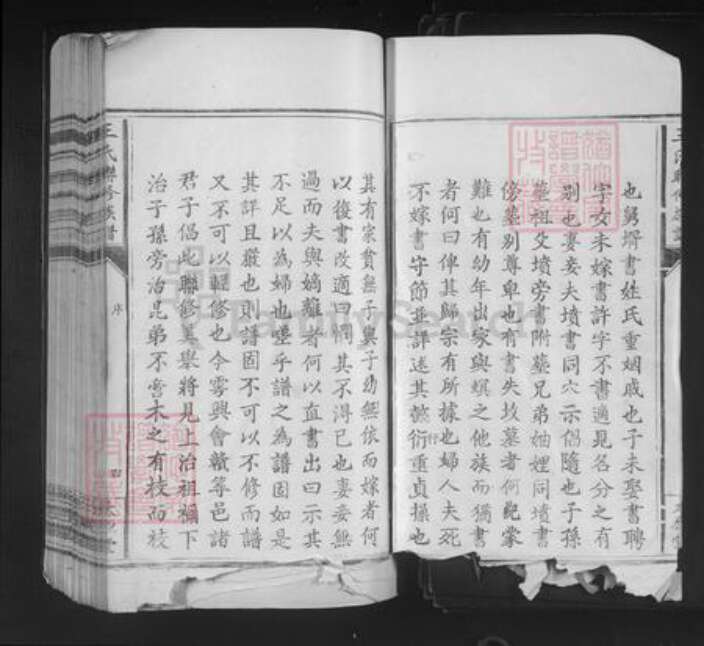 也舅壻書姓氏重姻戚也子未娶書聘
字女未嫁書許字不書適見名分之有
別也妻妾夫墳書同穴示倡隨也子孫
墓祖父墳旁書附墓兄弟妯娌同墳書
傍墓別尊卑也有書失坟墓者何
難也有幼年出家與螟之他族而獨書
者何曰俾其歸宗有所據也婦人夫死
不嫁書守節並詳述其懿行重貞操也
其有家貧無子與子幼無依而嫁者何
以後書改適曰憫其不得已也妻妾無
過而夫與嫡離者何以直書出曰示其
不足以為婦也噫乎譜之為譜固如是
其詳且嚴也則譜固不可以不修而譜
又不可以輕修也今雾興會贛等邑諸
君子倡此聯修美舉將見上治祖禰下
治子孫旁治昆弟不啻木之有枝而枝
王氏聯修族譜
序
FamilySearch